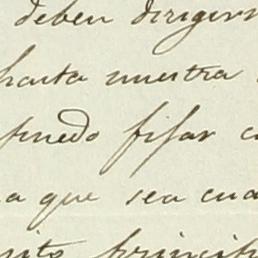 deben dirigirs
hasta nuestra
puedo fijar c
a que sea cua
nito principi